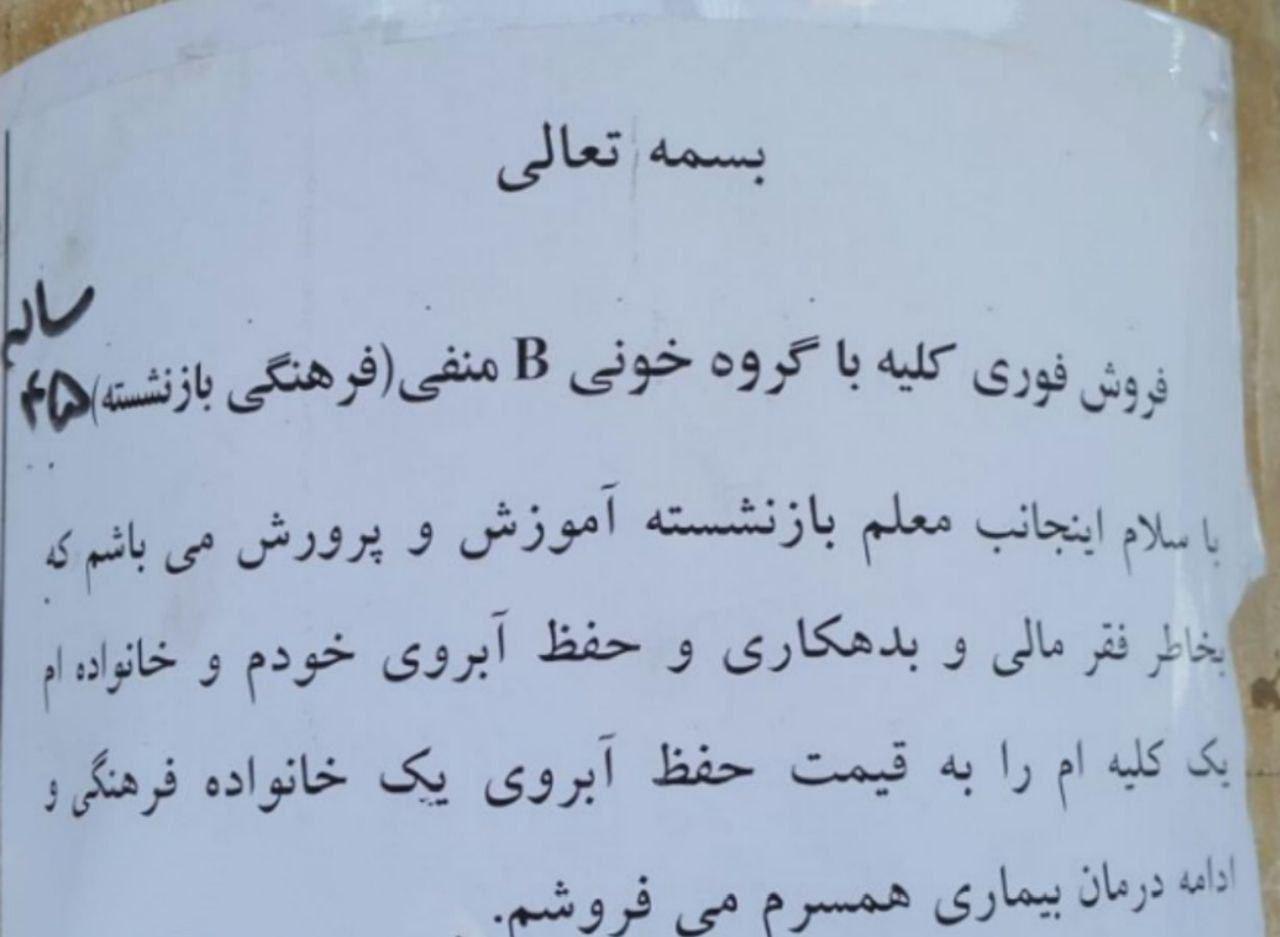 بسمه تعالی
فروش فوری کلیه با گروه خونی B منفی(فرهنگی بازنشسته) ۴۵ ساله
با سلام اینجانب معلم بازنشسته آموزش و پرورش می باشم که
بخاطر فقر مالی و بدهکاری و حفظ آبروی خودم و خانواده ام
یک کلیه ام را به قیمت حفظ آبروی یک خانواده فرهنگی و
ادامه درمان بیماری همسرم می فروشم.